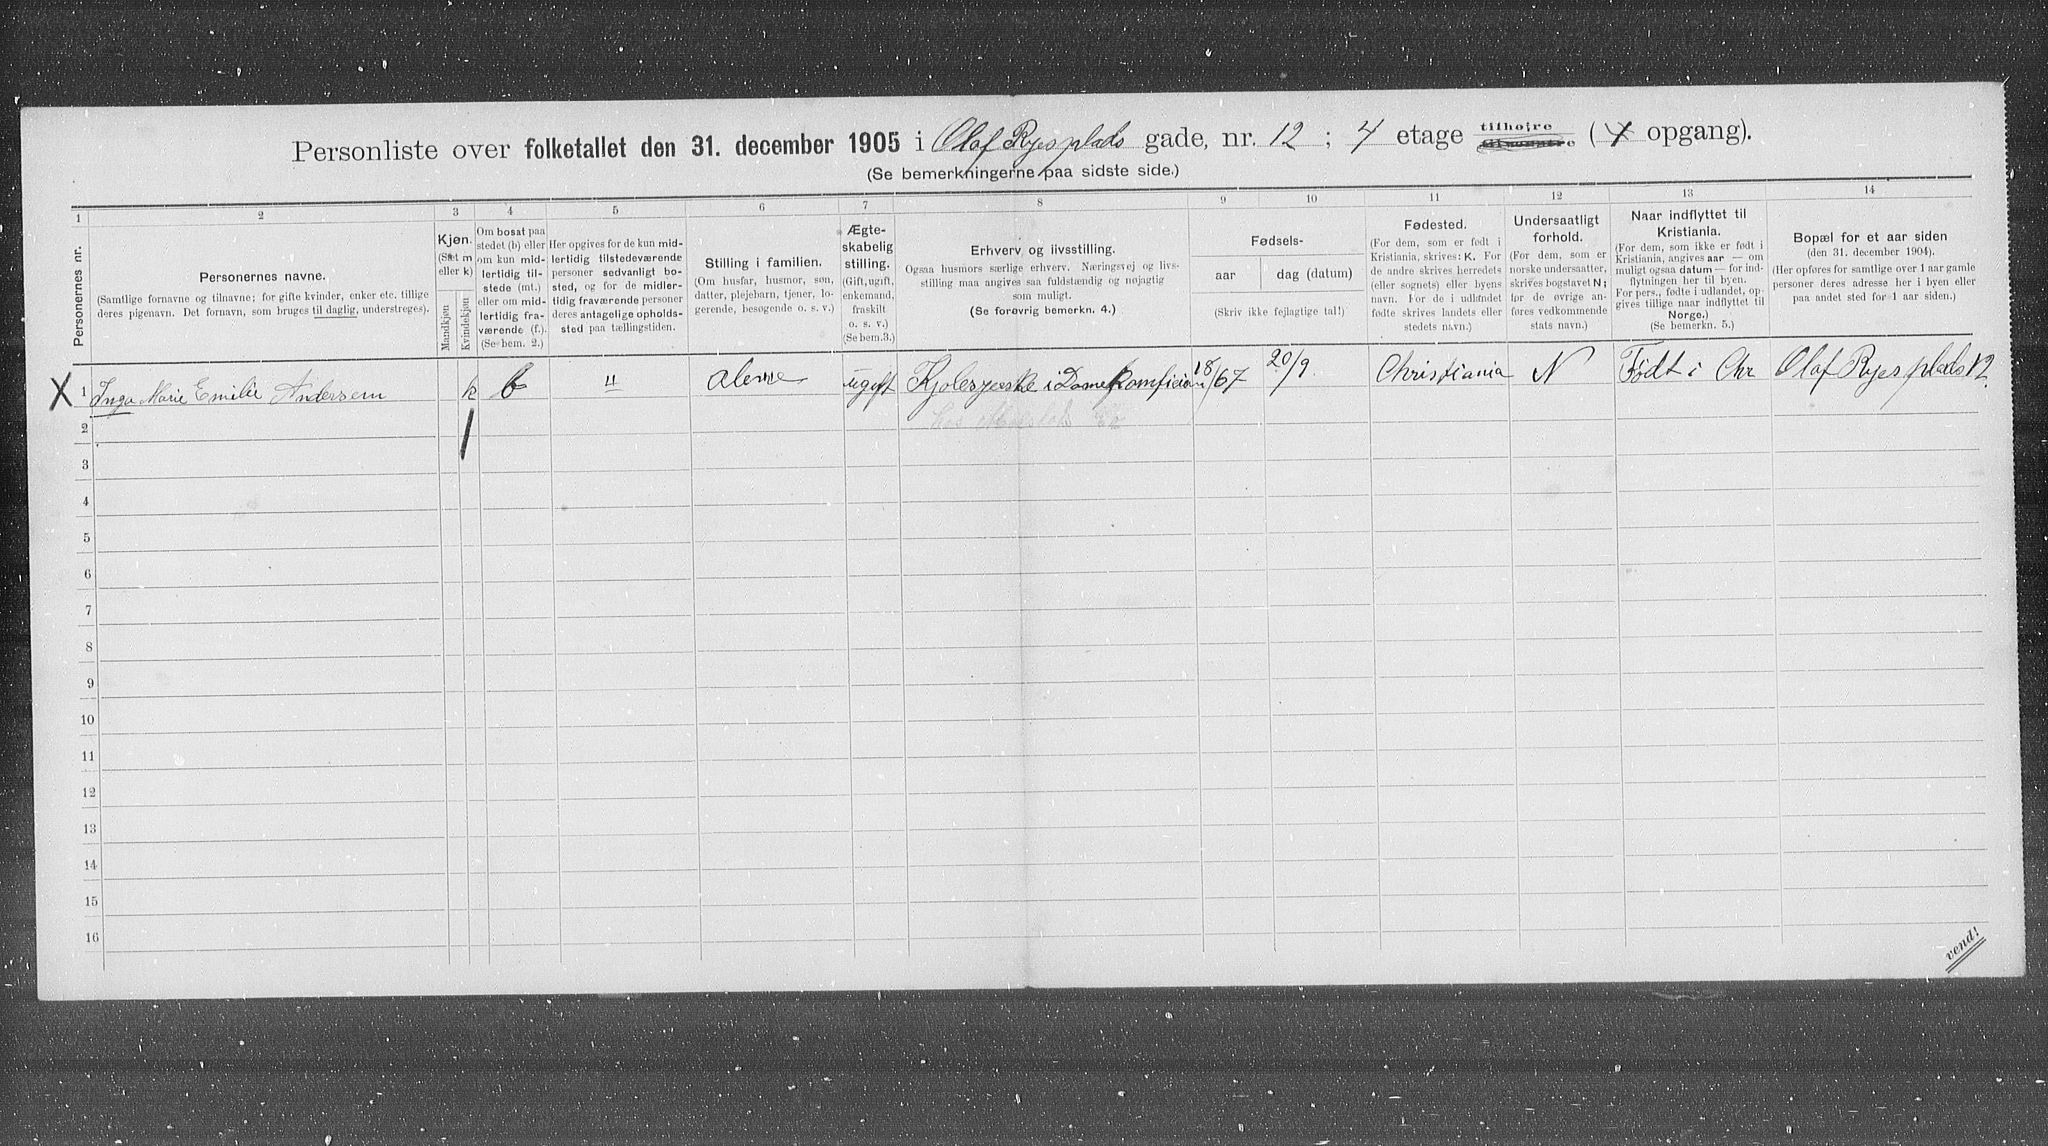 Personliste over folketallet den 31. december 1905 i Olaf Ryes plads gade, nr. 12 ; 4 etage tilhøire (X opgang).
(Se bemerkningerne paa sidste side.)
1 2 3 4 5 6 7 8 9 10 11 12 13 14
Personernes nr.
Personernes navne.
(Samtlige fornavne og tilnavne; for gifte kvinder, enker etc. tillige
deres pigenavn. Det fornavn, som bruges til daglig, understreges).
Kjøn.
(Sæt m
eller k)
Mandkjøn
Kvindekjøn
Om bosat paa
stedet (b) eller
om kun mid-
lertidig til-
stede (mt.)
eller om mid-
lertidig fra-
værende (f.).
(Se bem. 2.)
Her opgives for de kun mid-
lertidig tilstedeværende
personer sedvanligt bo-
sted, og for de midler-
tidig fraværende personer
deres antagelige opholds-
sted paa tællingstiden.
Stilling i familien.
(Om husfar, husmor, søn,
datter, plejebarn, tjener, lo-
gerende, besøgende o. s. v.)
Ægte-
skabelig
stilling.
(Gift, ugift,
enkemand,
fraskilt
o. s. v.)
(Se bem.3.)
Erhverv og livsstilling.
Ogsaa husmors særlige erhverv. Næringsvej og livs-
stilling maa angives saa fuldstændig og nøjagtig
som muligt.
(Se forøvrig bemerkn. 4.)
Fødsels-
aar
dag (datum)
(Skriv ikke fejlagtige tal!)
Fødested.
(For dem, som er født i
Kristiania, skrives: K. For
de andre skrives herredets
(eller sognets) eller byens
navn. For de i udlandet
fødte skrives landets eller
stedets navn.)
Undersaatligt
forhold.
(For dem, som er
norske undersaatter,
skrives bogstavet N;
for de øvrige an-
føres vedkommende
stats navn.)
Naar indflyttet til
Kristiania.
(For dem, som ikke er født i
Kristiania, angives aar — om
muligt ogsaa datum — for ind-
flytningen her til byen.
For pers., fødte i udlandet, op-
gives tillige naar indflyttet til
Norge.)
(Se bemerkn. 5.)
Bopæl for et aar siden
(den 31. december 1904).
(Her opføres for samtlige over 1 aar gamle
personer deres adresse her i byen eller
paa andet sted for 1 aar siden.)
X 1 Inga Marie Emilie Andersen k b " alene ugift Kjolesyerske i 18/67 20/9 Christiania N Født i Chr Olaf Ryes plads 12
2
3
4
5
6
7
8
9
10
11
12
13
14
15
16
vend!